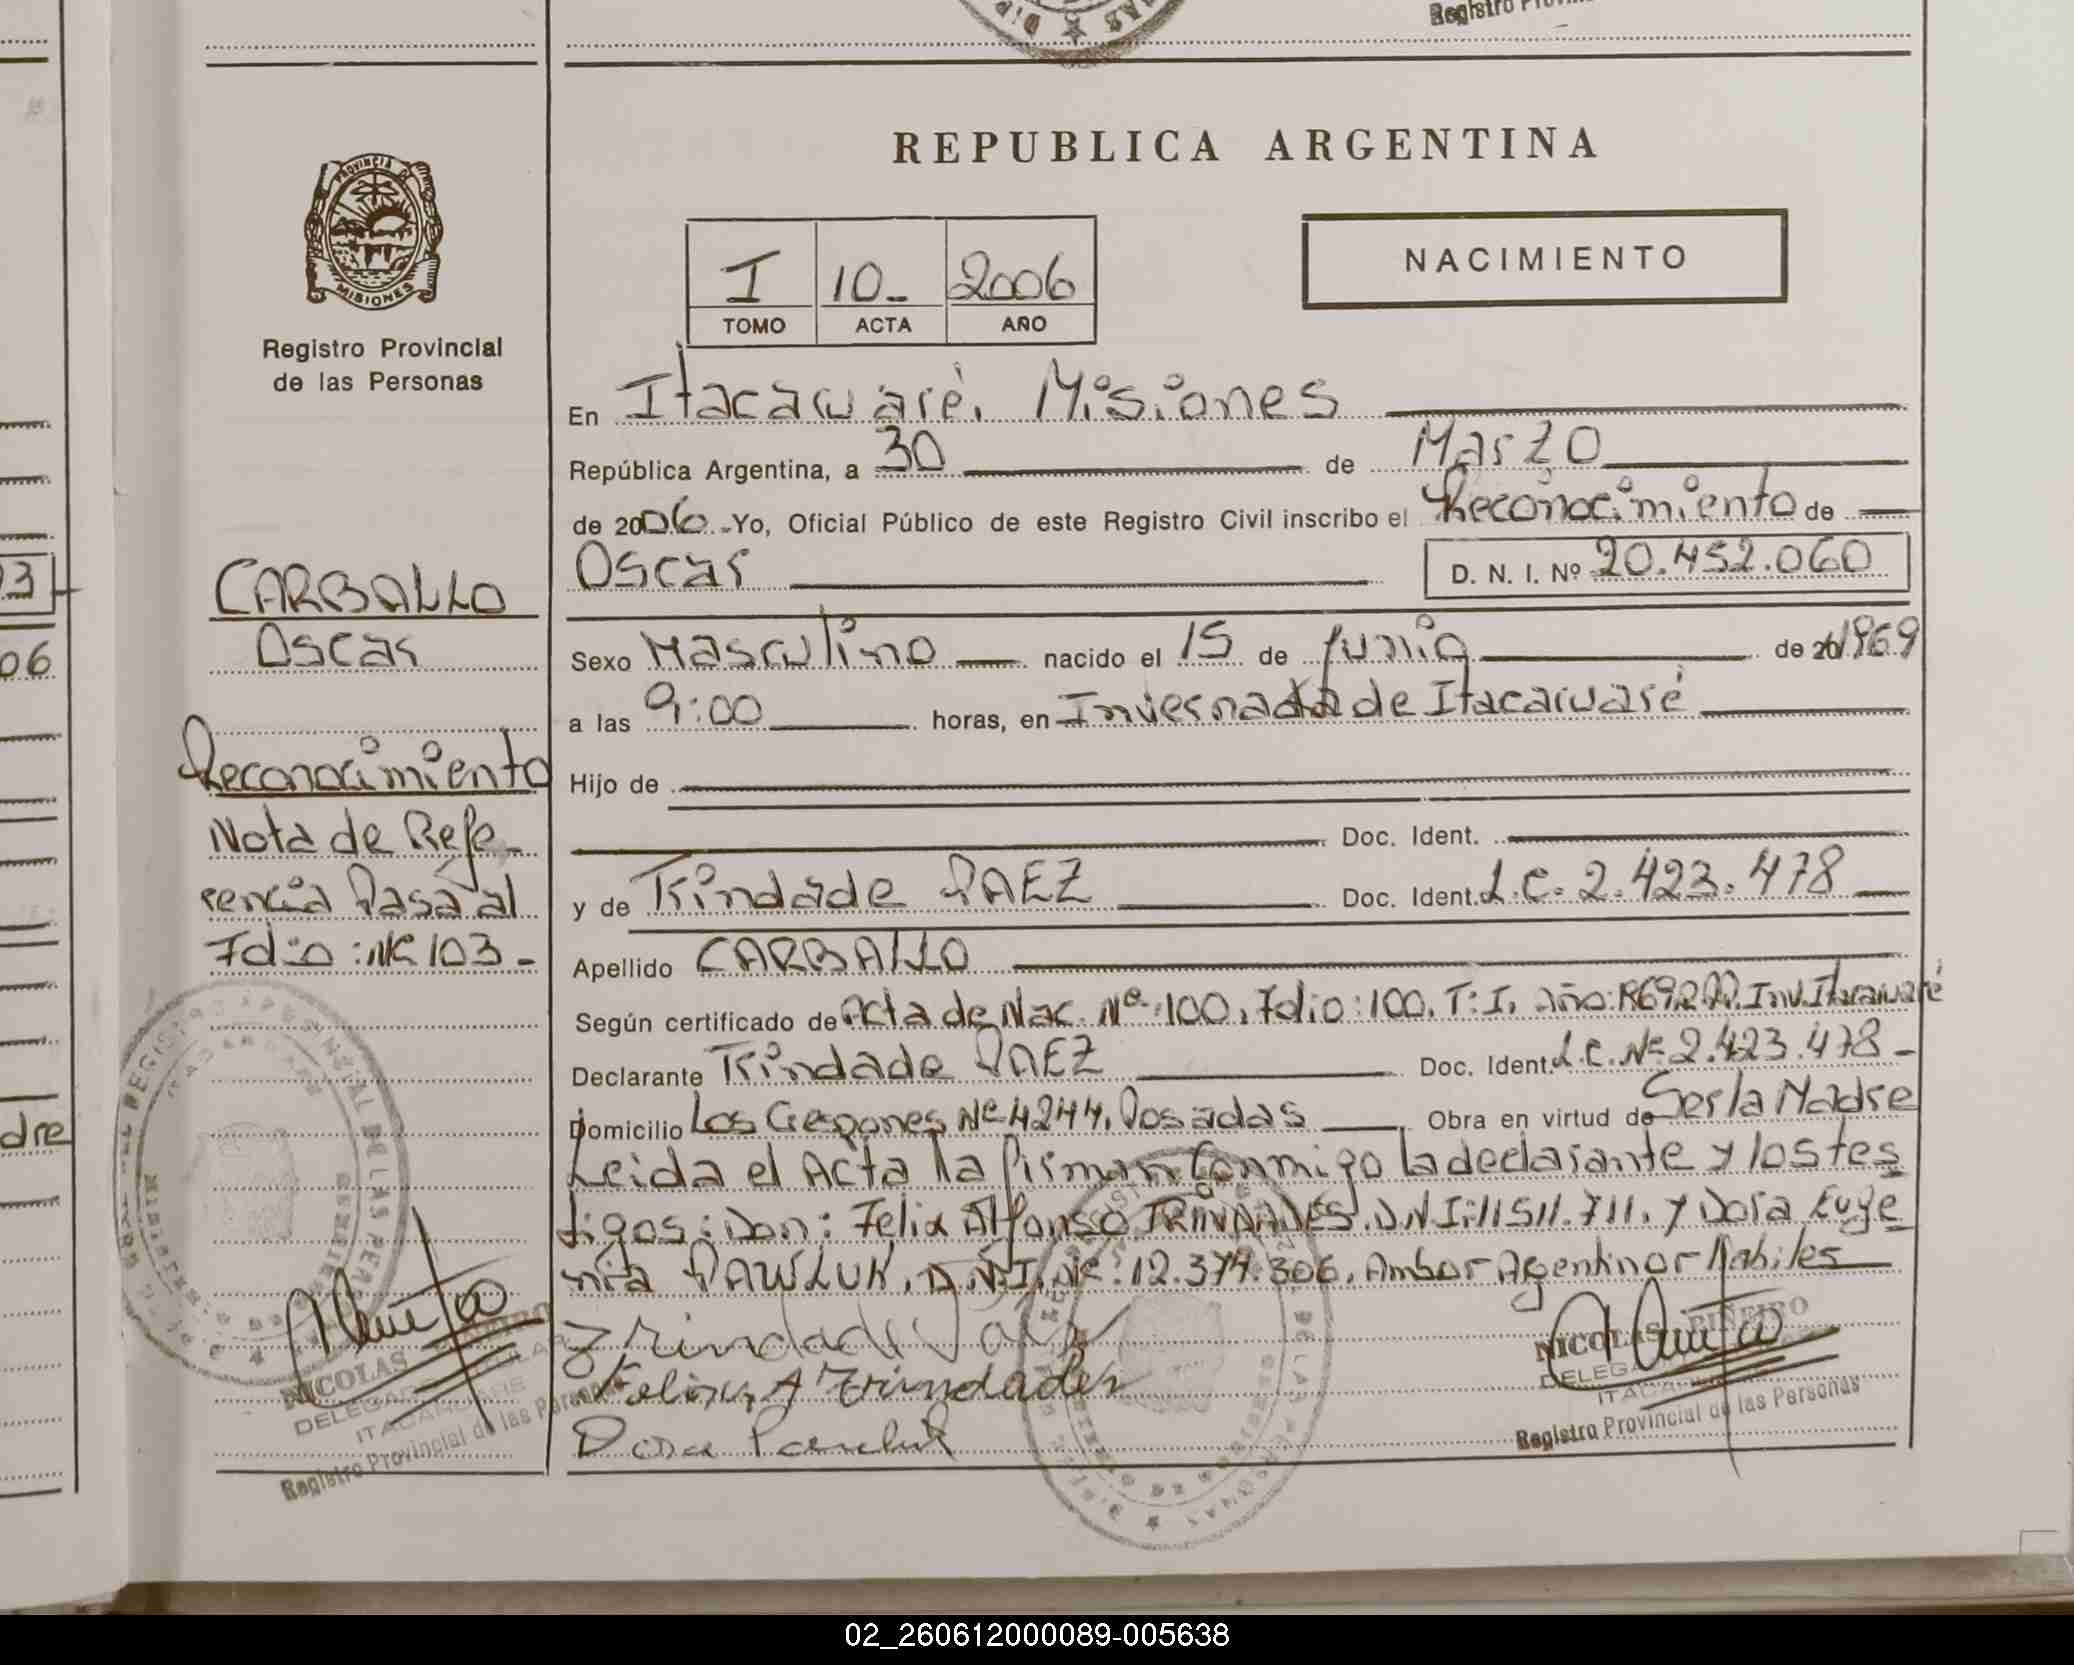 REPUBLICA ARGENTINA
NACIMIENTO
I 10_ 2006
TOMO ACTA AÑO
PROVINCIA DE
MISIONES
Registro Provincial
de las Personas
CARBALLO
Oscar
Reconocimiento
Nota de Refe_
rencia Pasa al
Folio: Nº 103_
En Itacaruaré. Misiones
República Argentina, a 30 de Marzo
de 2006 Yo, Oficial Público de este Registro Civil inscribo el Reconocimiento de
Oscar D. N. I. Nº 20.452.060
Sexo Masculino nacido el 15 de junio de 20 1969
a las 9:00 horas, en Invernada de Itacaruaré
Hijo de
Doc. Ident.
y de Trindade PAEZ Doc. Ident. L.C. 2.423.478
Apellido CARBALLO
Según certificado de Acta de Nac. Nº 100, Folio: 100. T: I. Año: Inv. Itacaruaré
Declarante Trindade PAEZ Doc. Ident. L.C. Nº 2.423.478_
Domicilio Los Nº 4244. Posadas Obra en virtud de Ser la Madre
Leida el Acta la firman Conmigo la declarante y los tes
tigos: Don: Felix Alfonso TRINDADES. D.N.I: 11511.711. y Dora Euge
nia PAWLUK. D.N.I. Nº: 12.374.306. Ambos Agentinos Habiles
Trindade Paez
Felix A Trindades
Dora Pawluk
NICOLAS PIÑEIRO
DELEGADO
ITACARUARE
Registro Provincial de las Personas
NICOLAS PIÑEIRO
ITACARUARE
Registro Provincial de las Personas
02_260612000089-005638